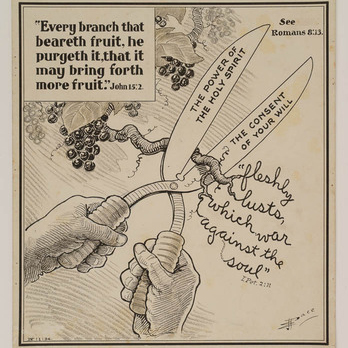 "Every branch that
beareth fruit, he
purgeth it, that it
may bring forth
more fruit." John 15:2.
See
Romans 8:13.
THE POWER OF
THE HOLY SPIRIT
THE CONSENT
OF YOUR WILL
"fleshly
lusts,
which war
against the
soul"
I Pet. 2:11
Pace